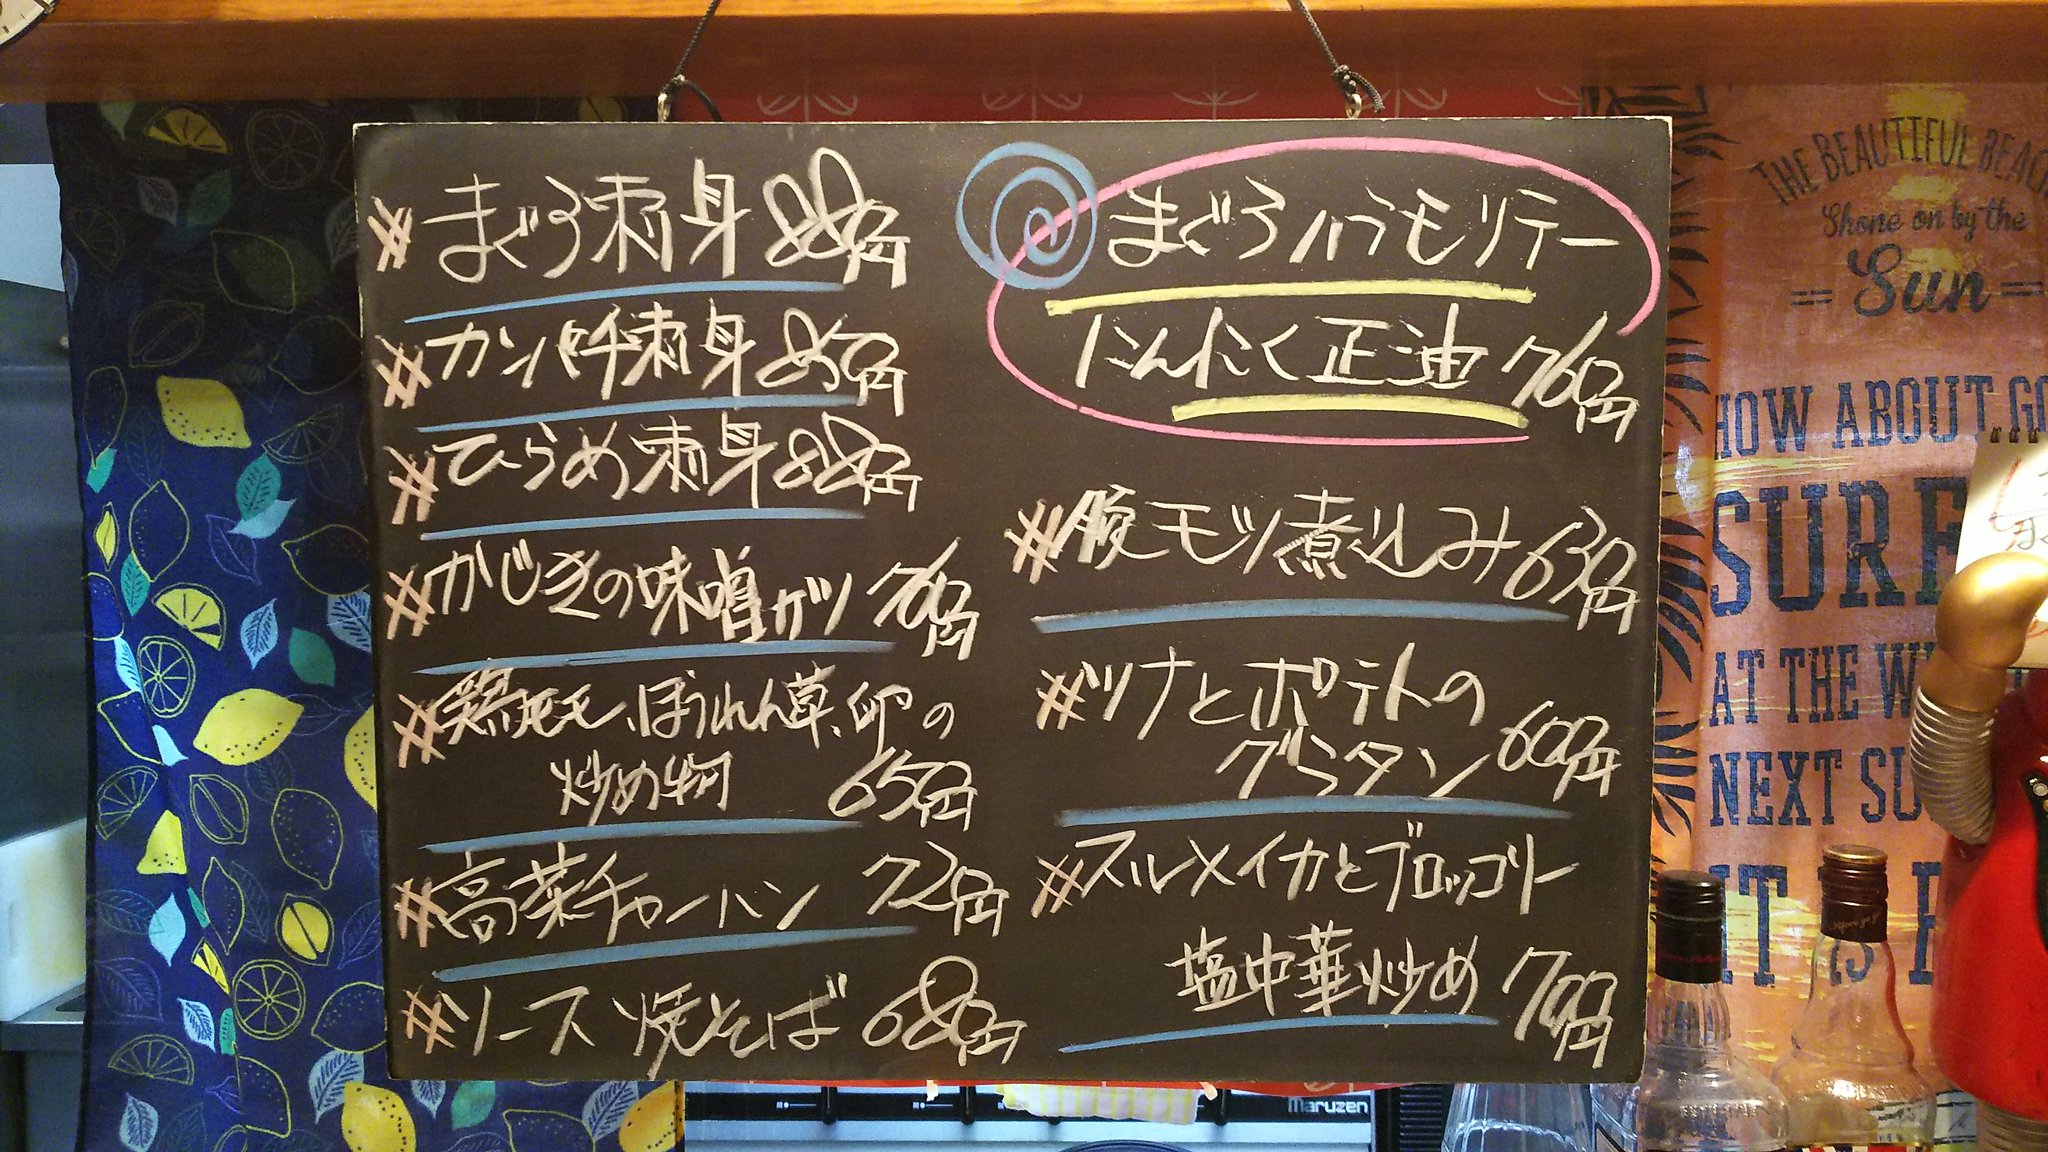 #まぐろ刺身 880円
#カンパチ刺身
#ひらめ刺身 880円
#かじきの味噌 760円
#鶏モモ、ほうれん草、卵の
炒め物 650円
#高菜チャーハン 720円
#ソース焼そば 680円
まぐろハラモソテー
にんにく正油 760円
#豚モツ煮込み 630円
#ツナとポテトの
グラタン 600円
#スルメイカとブロッコリー
塩中華炒め 700円
THE BEAUTIFUL BEACH
Shone on by the
Sun
HOW ABOUT GO
SURF
AT THE W
NEXT SU
IT IS
Maruzen